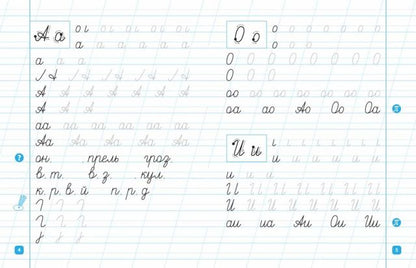 А а
а а а а а а
а а а
А А А А
А А А А А А А А
А А А
аа аа аа аа аа аа аа
Аа Аа Аа Аа Аа
он. прель гроз.
в.т. в.з. .кул.
к.р.в.й п.р.д
4
О о
О О О О О О О О О
О О О
оо оо оо оо оо оо оо
оа ао Ао Оо Оа
И и
и и и и и и и и
и и и
И И И И И И И И
аи иа Аи Ои Ии
5